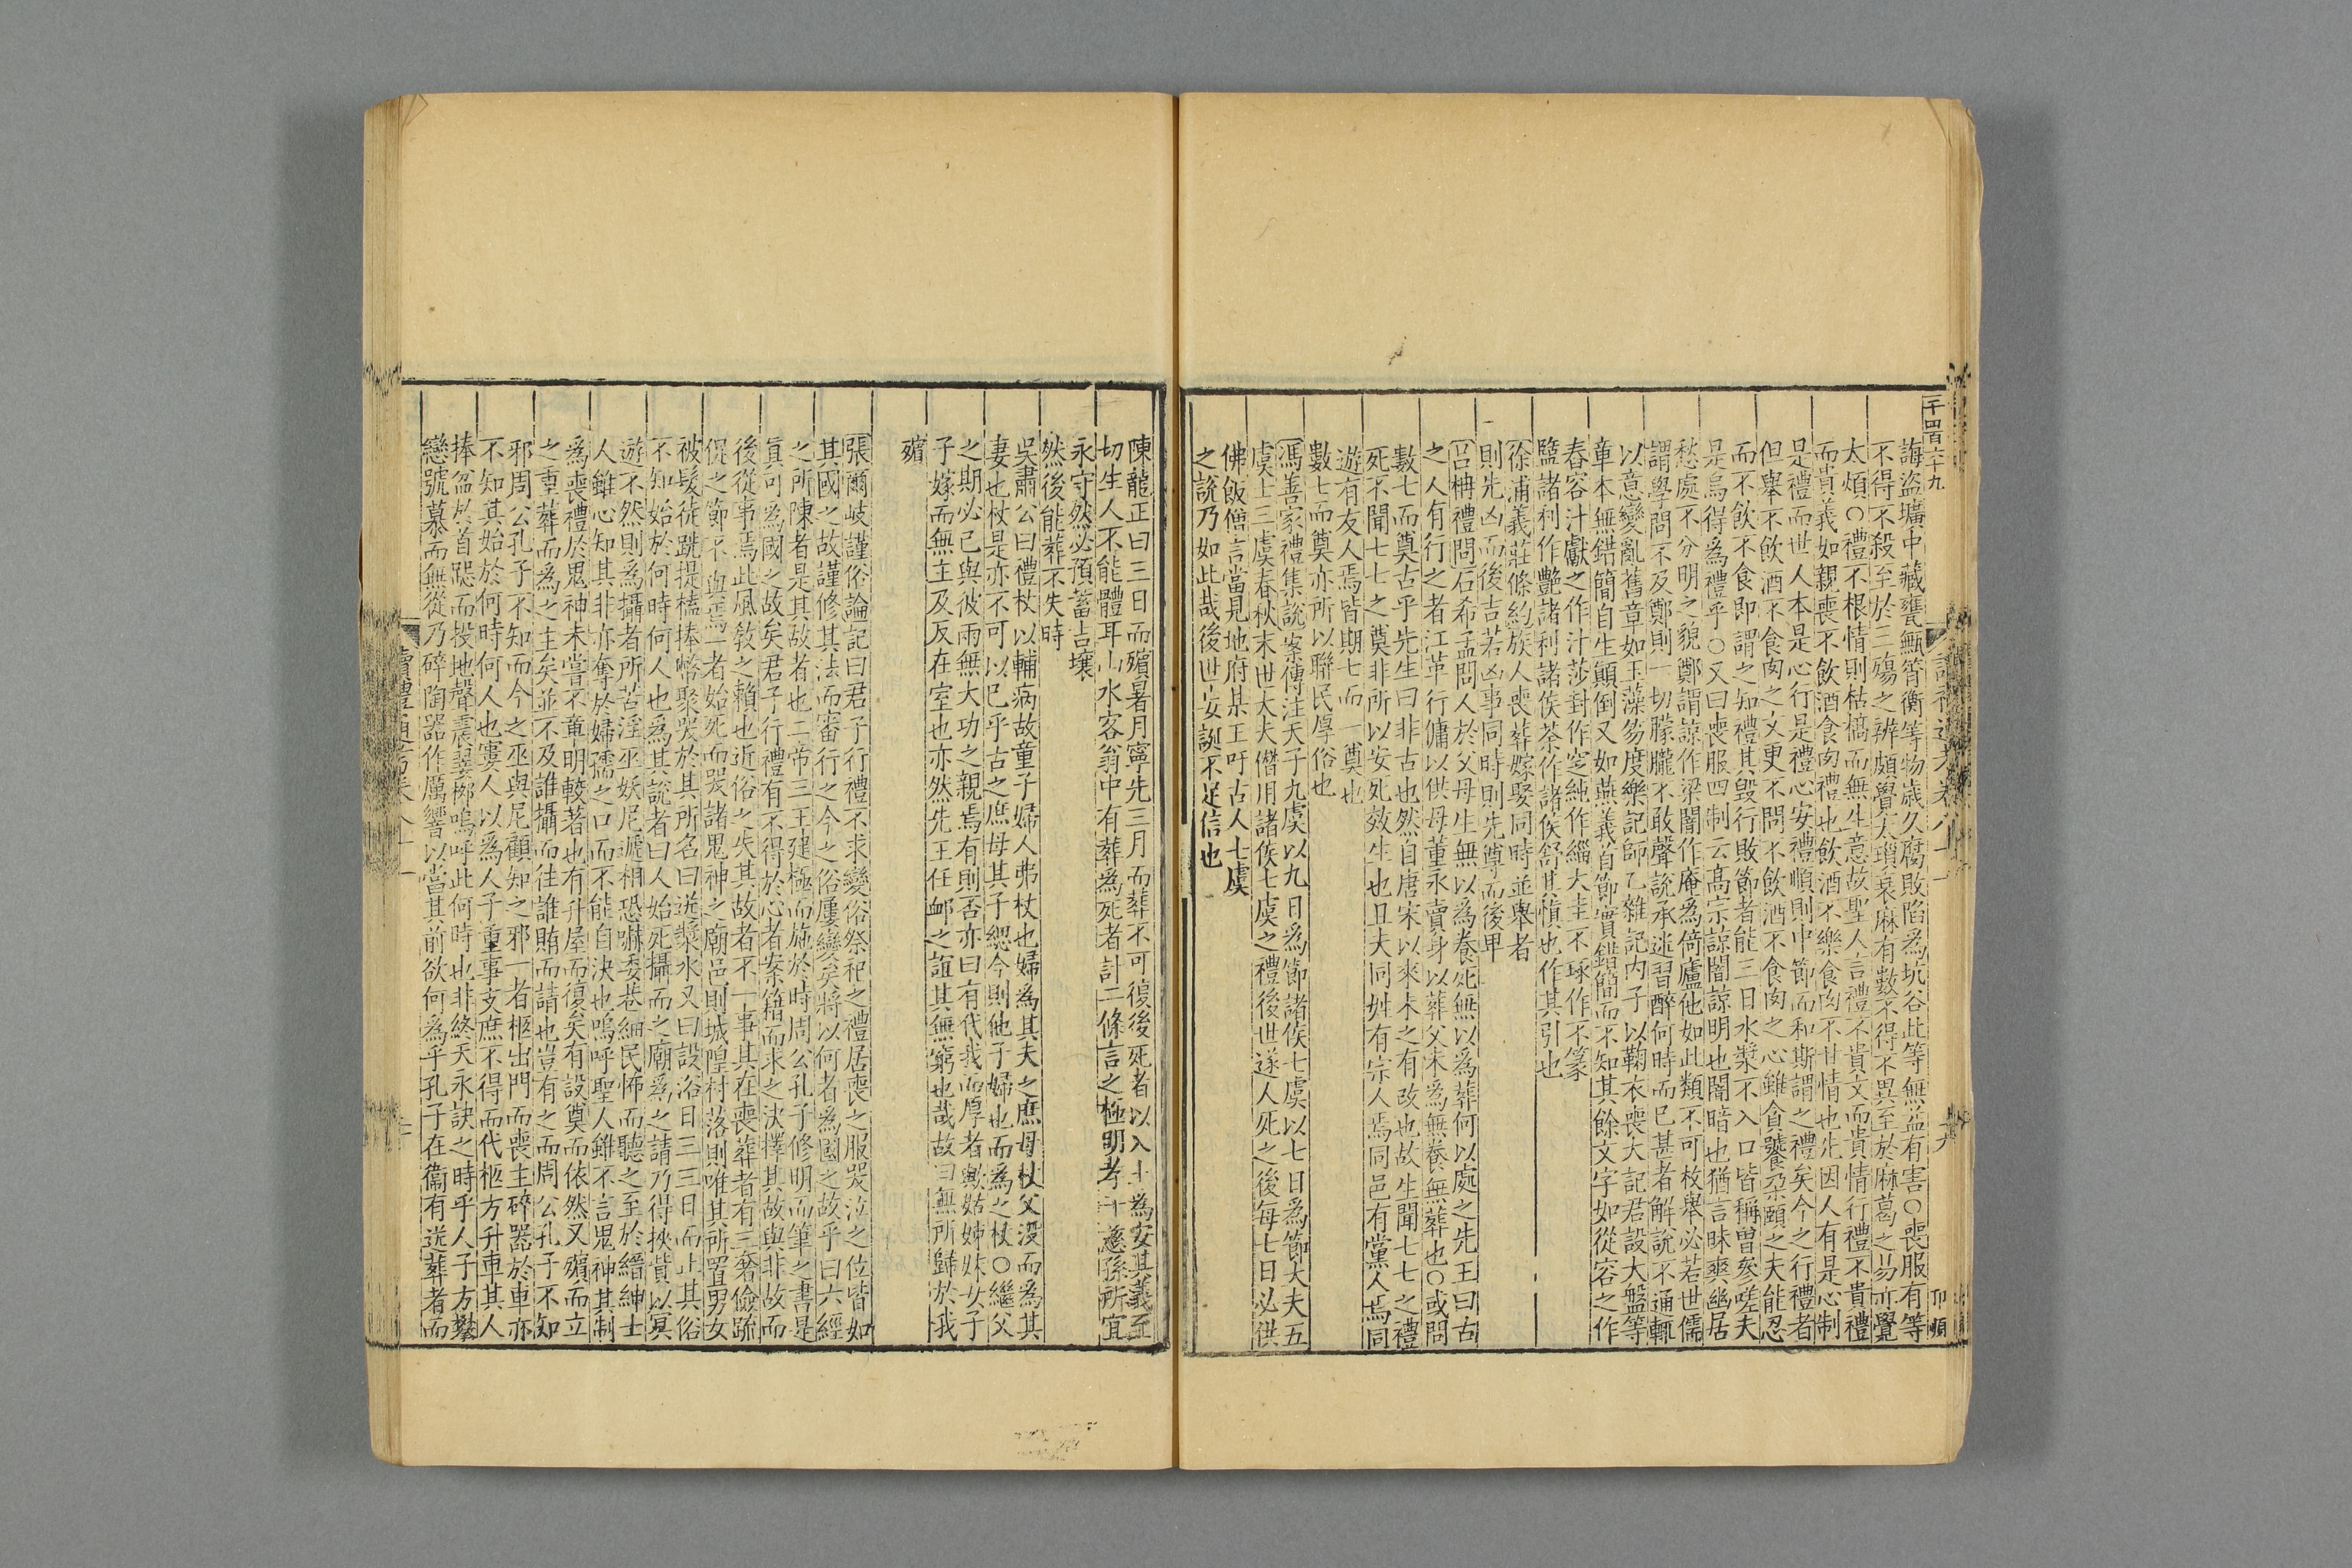 千四百六十九
讀禮通考卷八十一
誨盜壙中藏甕甒筲衡等物歲久腐敗陷爲坑谷此等無益有害○喪服有等
不得不殺至於三殤之辨頗覺太瑣衰麻有數不得不異至於麻葛之易亦覺
太煩○禮不根情則枯槁而無生意故聖人言禮不貴文而貴情行禮不貴禮
而貴義如親喪不飲酒食肉禮也飲酒不樂食肉不甘情也先因人有是心制
是禮而世人本是心行是禮心安禮順則中節而和斯謂之禮矣今之行禮者
但舉不飲酒不食肉之文更不問不飲酒不食肉之心雖貪饕朶頤之夫能忍
而不飲不食即謂之知禮其毀行敗節者能三日水漿不入口皆稱曾參嗟夫
是烏得爲禮乎○又曰喪服四制云高宗諒闇諒明也闇暗也猶言昧爽幽居
愁處不分明之貌鄭謂諒作梁闇作庵爲倚廬他如此類不可枚舉必若世儒
謂學問不及鄭則一切朦朧不敢聲說承迷習醉何時而已甚者解說不通輒
以意變亂舊章如玉藻易度樂記師乙雜記內子以鞠衣喪大記君設大盤等
章本無錯簡自生顛倒又如燕義首節實錯簡而不知其餘文字如從容之作
舂容汁獻之作汁莎封作窆純作緇大圭不琢作不篆
盬諸利作艷諸利諸侯荼作諸侯舒其愼也作其引也
徐浦義莊條約族人喪葬嫁娶同時並舉者
則先凶而後吉若凶事同時則先尊而後卑
呂柟禮問石希孟問人於父母生無以爲養死無以爲葬何以處之先王曰古
之人有行之者江革行傭以供母董永賣身以葬父未爲無養無葬也○或問
數七而奠古乎先生曰非古也然自唐宋以來未之有改也故生聞七七之禮
死不聞七七之奠非所以安死效生也且夫同姓有宗人焉同邑有黨人焉同
遊有友人焉皆期七而一奠也
數七而奠亦所以聯民厚俗也
馮善家禮集說案傳注天子九虞以九日爲節諸侯七虞以七日爲節大夫五
虞士三虞春秋末世大夫僭用諸侯七虞之禮後世遂人死之後每七日必供
佛飯僧言當見地府某王吁古人七虞
之說乃如此哉後世妄誕不足信也
陳龍正曰三日而殯暑月寧先三月而葬不可復後死者以入土爲安其義至
切生人不能體耳山水客翁中有葬爲死者計二條言之極明孝子慈孫所宜
永守然必預蓄吉壤
然後能葬不失時
吳肅公曰禮杖以輔病故童子婦人弗杖也婦爲其夫之庶母杖父沒而爲其
妻也杖是亦不可以已乎古之庶母其子緦今則他子婦也而爲之杖○繼父
之期必已與彼兩無大功之親焉有則否亦曰有代我而厚者歟姑姊妹女子
子嫁而無主及反在室也亦然先王任卹之誼其無窮也哉故曰無所歸於我
殯
張爾岐謹俗論記曰君子行禮不求變俗祭祀之禮居喪之服哭泣之位皆如
其國之故謹修其法而審行之今之俗屢變矣將以何者爲國之故乎曰六經
之所陳者是其故者也二帝三王建極而施於時周公孔子修明而筆之書是
眞可爲國之故矣君子行禮有不得於心者案籍而求之決擇其故與非故而
後從事焉此風敎之賴也近俗之失其故者不一事其在喪葬者有三奢儉疏
促之節不與焉一者始死而哭諸鬼神之廟邑則城隍村落則唯其所置男女
被髮徒跣提榼捧幣聚哭於其所名曰送漿水又曰設浴日三三日而止其俗
不知始於何時何人也爲其說者曰人始死攝而之廟爲之請乃得挾貲以冥
遊不然則爲攝者所苦淫巫妖尼遞相恐嚇委巷細民怖而聽之至於縉紳士
人雖心知其非亦奪於婦孺之口而不能自決也嗚呼聖人雖不言鬼神其制
爲喪禮於鬼神未嘗不章明較著也有升屋而復矣有設奠而依然又殯而立
之重葬而爲之主矣並不及誰攝而往誰賄而請也豈有之而周公孔子不知
邪周公孔子不知而今之巫與尼顧知之邪一者柩出門而喪主碎器於車亦
不知其始於何時何人也寠人以爲人子重事支庶不得而代柩方升車其人
捧盆於首跽而投地聲震翣栁嗚呼此何時也非終天永訣之時乎人子方攀
戀號慕而無從乃碎陶器作厲響以當其前欲何爲乎孔子在衞有送葬者而
讀禮通考卷八十一